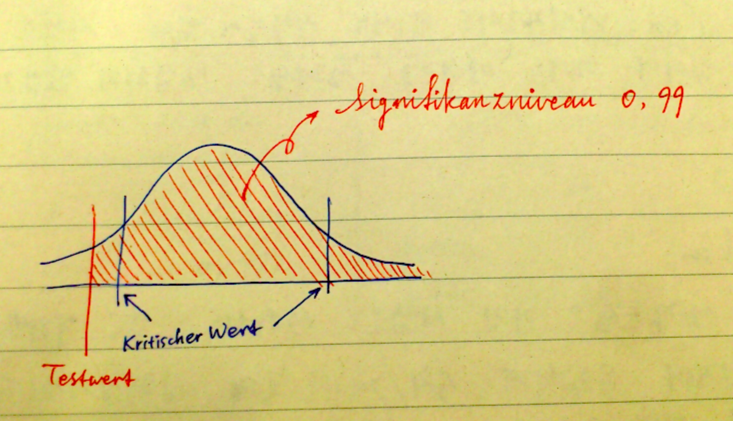 Signifikanzniveau 0,99
Kritischer Wert
Testwert